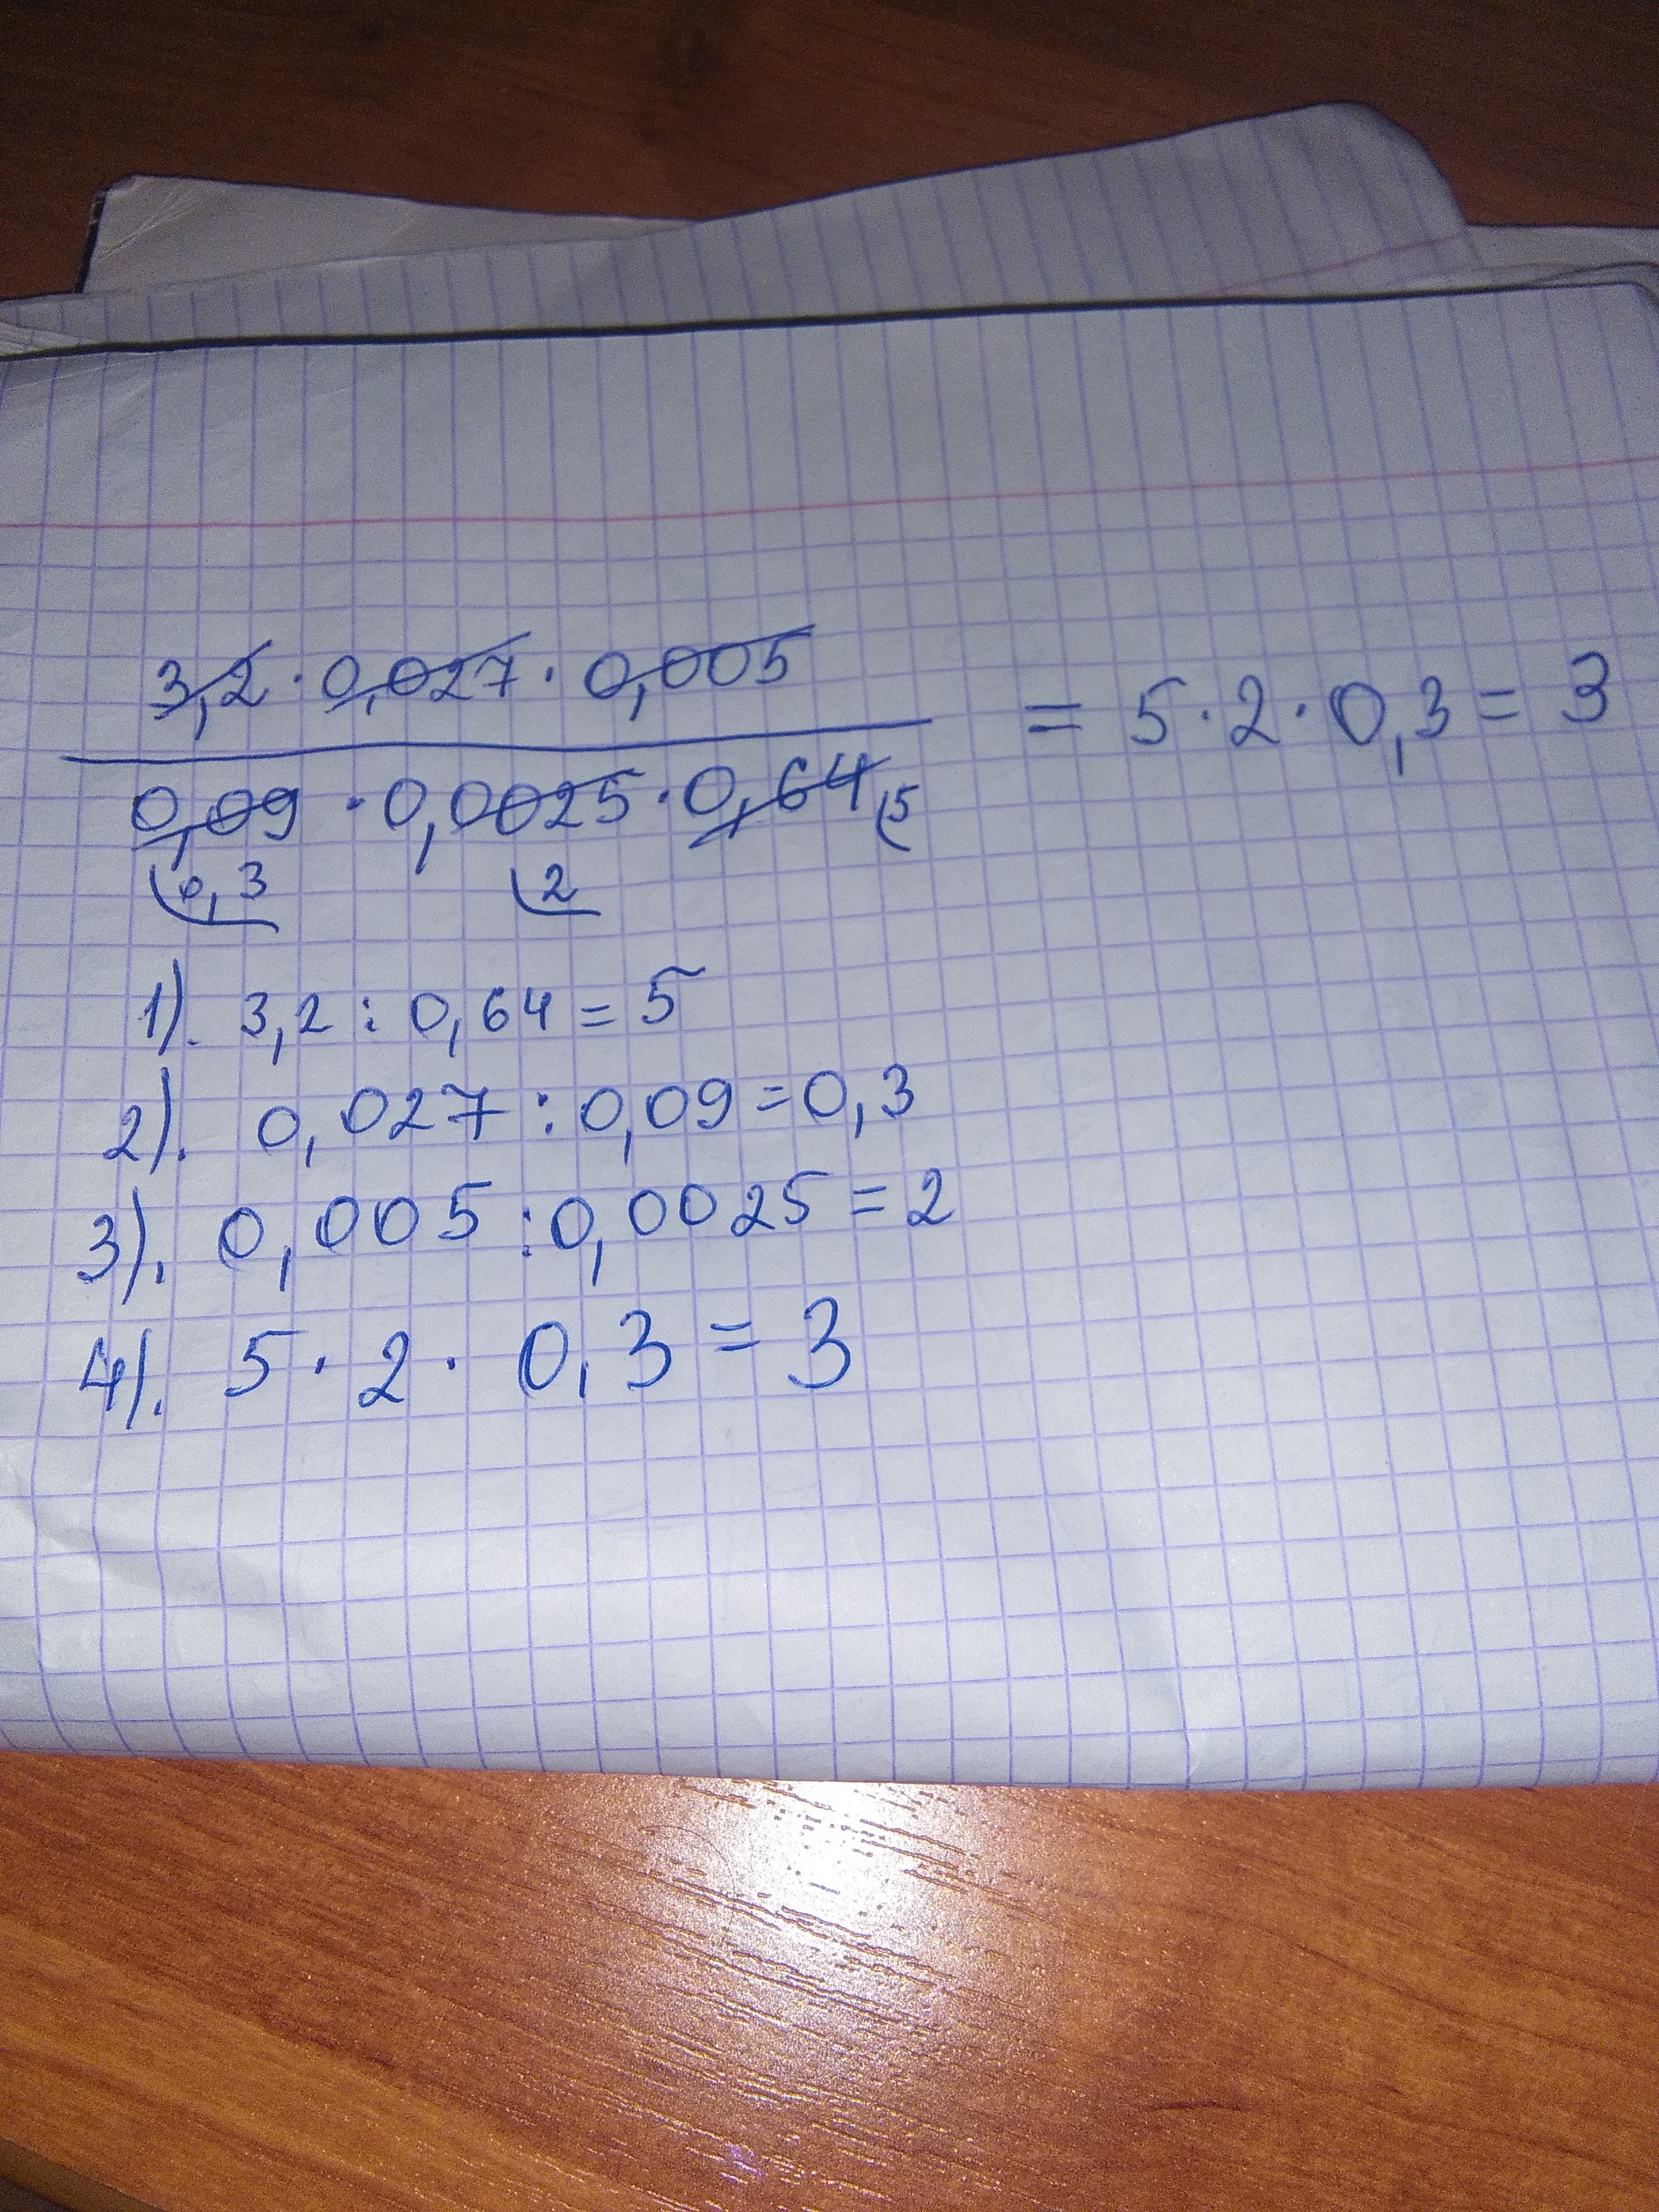 3,2 · 0,027 · 0,005
= 5 · 2 · 0,3 = 3
0,09 · 0,0025 · 0,64 5
0,3 2
1). 3,2 : 0,64 = 5
2). 0,027 : 0,09 = 0,3
3). 0,005 : 0,0025 = 2
4). 5 · 2 · 0,3 = 3